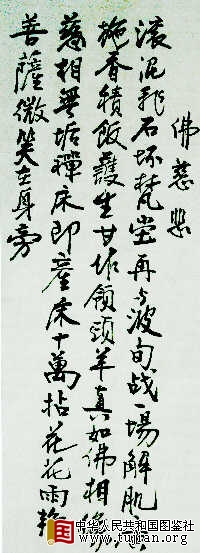 佛慈悲
滚泥飛石坏梵堂再与波旬战一場解肌
施香積飯護生甘作領頭羊真如佛相
慈相無垢禪床即產床十萬拈花花雨
菩薩微笑在身旁
中华人民共和国图鉴社
www.tujian.org